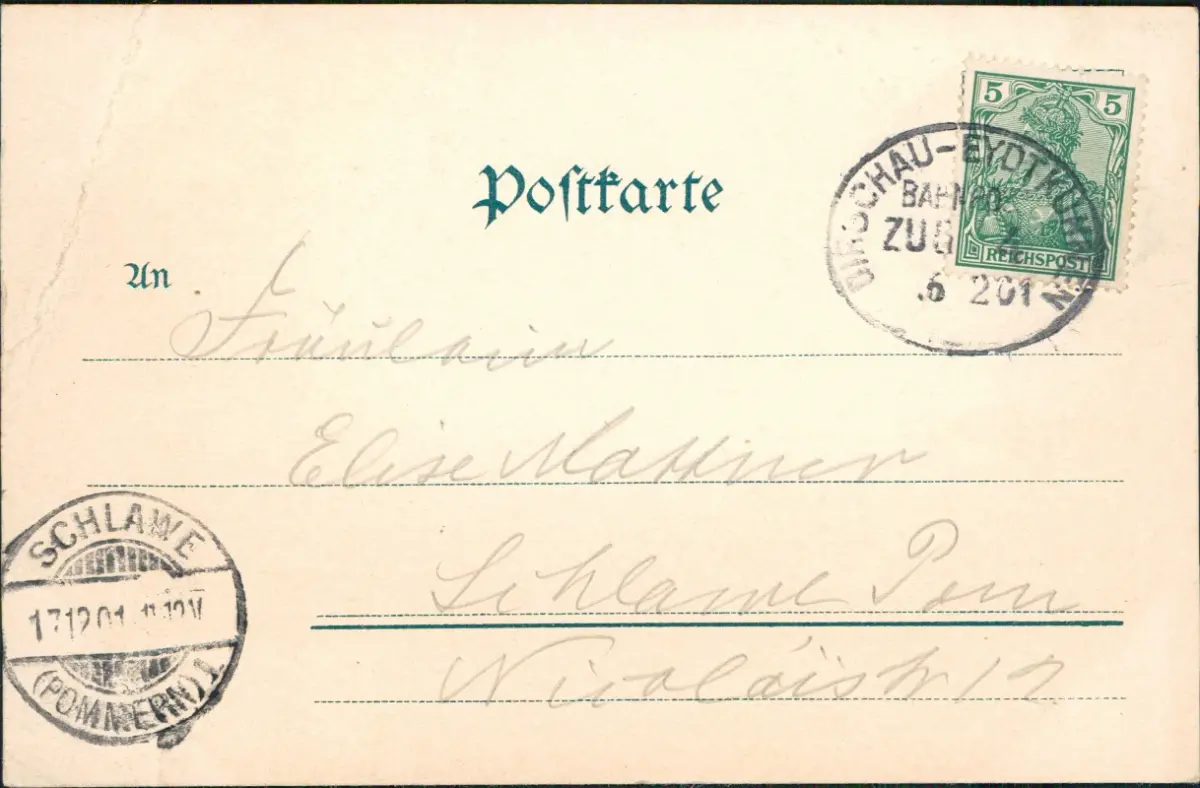 5 5
REICHSPOST
DIRSCHAU-EYDTKUHNEN
BAHNPO
ZUG
Postkarte
An
Fräulein
Elise Mattner
Schlawe Pom
Nicoläistr 17
SCHLAWE
17.12.01. 11-12V
(POMMERN) 1